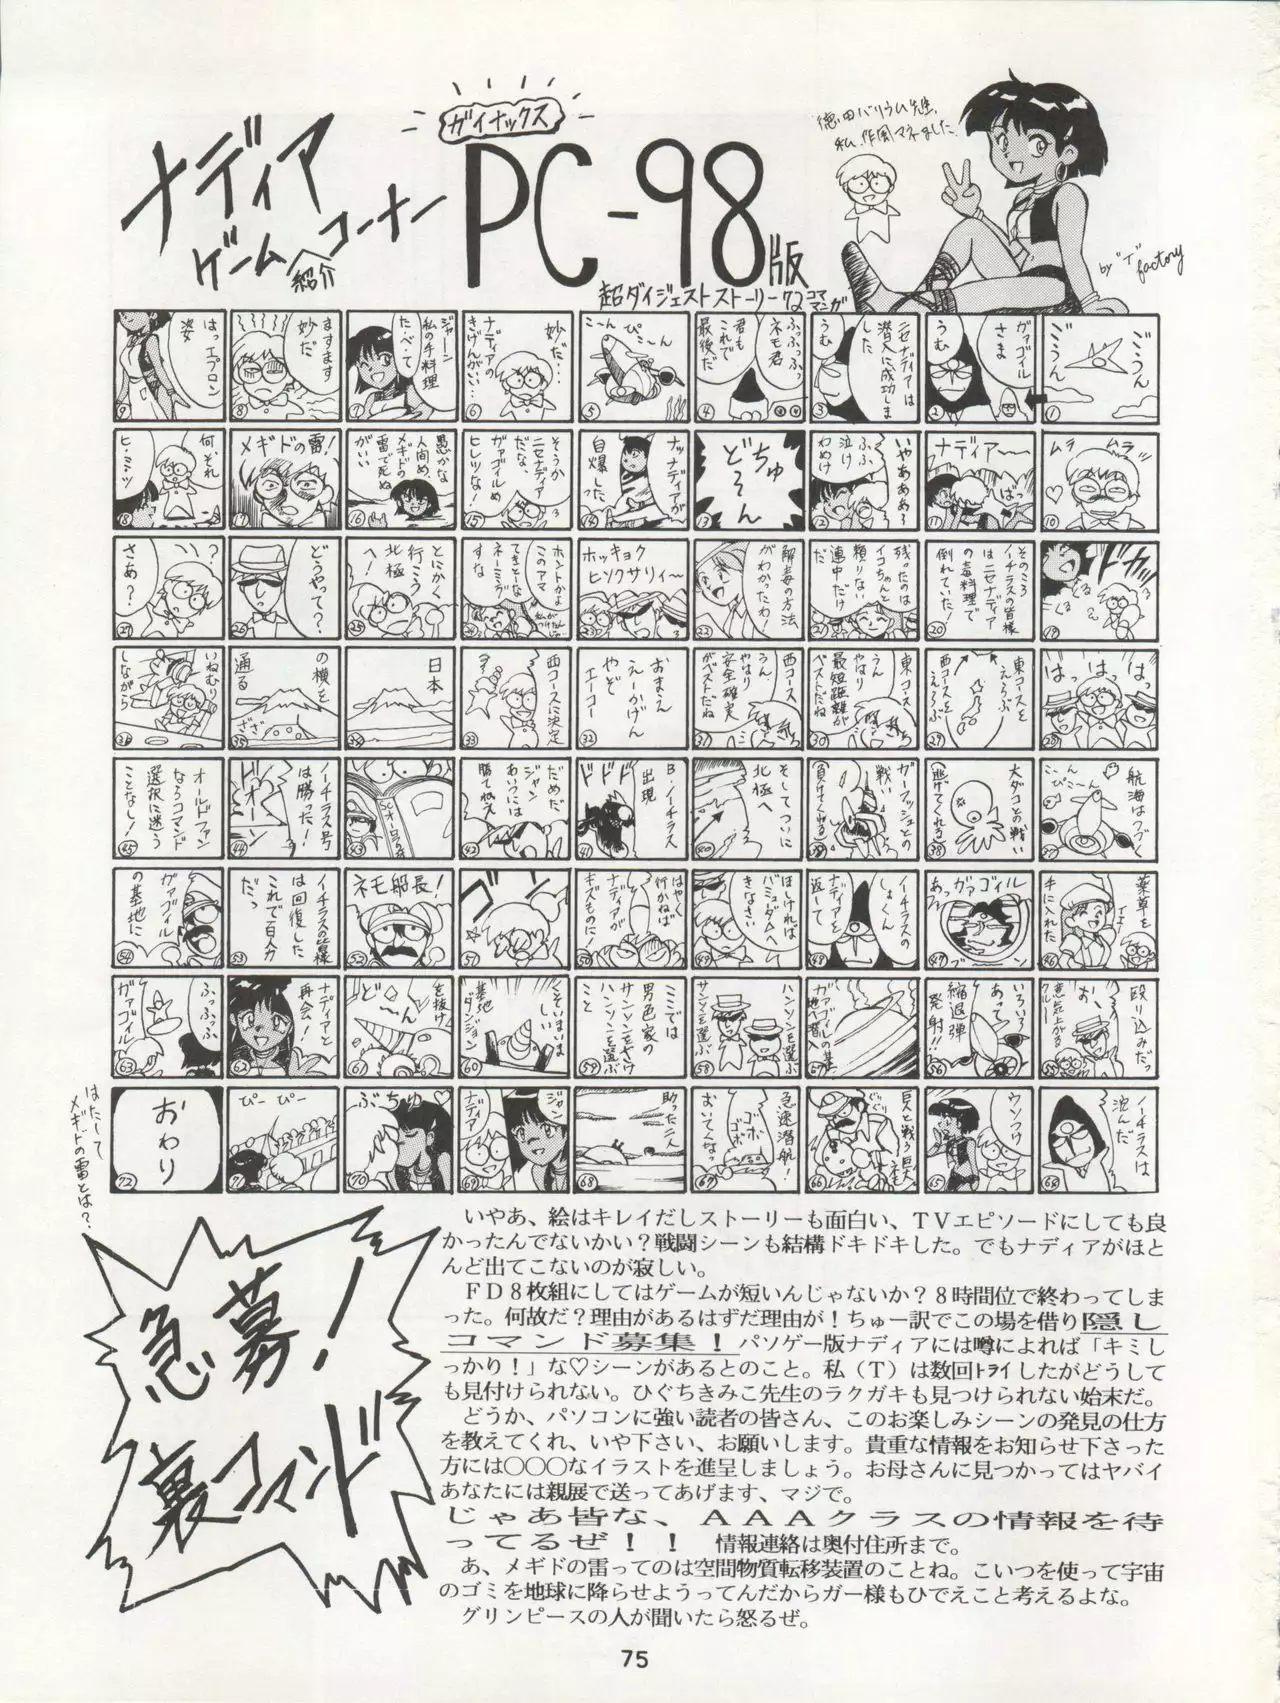 ナディア
ゲーム紹介コーナー
ガイナックス
PC-98版
超ダイジェストストーリー72コママンガ
徳田バリウム先生、
私、作風マネました
by "T" factory
ごうん
ごうん
1
ガァゴイル
さま
うむ
2
ニセナディアは
潜入に成功しま
した
うむ
3
ふっふっふっ
ネモ君
君も
これで
最後だ
4
こーん
ぴこーん
5
妙だ…
ナディアの
きげんがいい…
6
ジャーン
私の手料理
た・べ・て
7
ますます
妙だ
8
はっエプロン
姿
9
ムラ
ムラッ
10
ナディア〜〜
がばっ
11
いやあああ〜
ふふ、
泣け
わめけ
12
どちゅ
13
ナッナディアが
自爆した
14
そうか
ニセナディア
だな、
ガァゴイルめ
ヒレツな!
15
愚かな
人間め、
メギドの
雷で死ぬ
がいい
16
メギドの雷!
17
何それ
ヒ・ミ・ツ
18
ドカッ
19
そのころ
ノーチラスの皆様
はニセナディア
の毒料理で
倒れていた!
20
残ったのは
イコちゃんと
頼りない
連中だけ
だ
21
解毒の方法
がわかったわ!
22
ホッキョク
ヒソクサリィ〜
23
ホントかよ
このアマ
てきとーな
ネーミング
すな
24
とにかく
行こう
北極
へ!
25
どうやって?
26
?
さあ?
27
はっはっはっ
28
東コースを
えらぶ
西コースを
えらぶ
29
東コース
うん
やはり
最短距離が
ベストだね
30
西コース
うん、
やはり
安全確実
がベストだね
31
おまえ
えーかげん
やぞ
エーコー
32
西コースに決定
33
日本
34
の横を
通る
35
いねむり
しながら
36
航海はつづく
こーん
ぴこーん
37
大ダコとの戦い
(逃げてくれる)
38
ガーフィッシュとの
戦い
(負けてくれる)
39
そしてついに
北極へ
40
B・ノーチラス
出現
ドドド
41
だめだ、
ジャン
あいつには
勝てねえ
42
43
ノーチラス号
は勝った!
44
オールドファン
ならコマンド
選択に迷う
ことなし!
45
薬草を
手に入れた
46
ガァゴイル
あっ
47
ノーチラスの
しょくん
ナディアを
返して
48
ほしければ
バミューダへ
きなさい
49
はやく
行かねば
ナディアが
キズものに!
50
51
ネモ船長!
52
ノーチラスの皆様
は回復した
これで百人力
だっ
53
ガァゴイル
の基地に
54
殴り込みだ
お、
意気上がる
クルー
55
いろいろ
あって
縮退弾
発射!!
56
57
ハンソンを選ぶ
サンソンを選ぶ
58
ここでは
男色家の
サンソンを避け
ハンソンを選ぶ
こと
59
くそいまいま
しい
基地
ダンジョン
60
を抜け
61
ナディアと
再会!
62
ふっふっふ
ガァゴイル
63
ノーチラスは
沈んだ
64
ウソつけ
65
巨人と戦う巨大
ネモ
66
急速潜航!
おいてくなっ
ゴボゴボ
67
助った二人
68
ジャン
ナディア
69
ぶちゅ
70
ぴーぴー
71
おわり
72
はたして
メギドの雷とは?
急募!
裏コマンド
いやあ、絵はキレイだしストーリーも面白い、TVエピソードにしても良
かったんでないかい?戦闘シーンも結構ドキドキした。でもナディアがほと
んど出てこないのが寂しい。
FD8枚組にしてはゲームが短いんじゃないか?8時間位で終わってしま
った。何故だ?理由があるはずだ理由が!ちゅー訳でこの場を借り隠し
コマンド募集!パソゲー版ナディアには噂によれば「キミし
っかり!」な♡シーンがあるとのこと。私(T)は数回トライしたがどうして
も見付けられない。ひぐちきみこ先生のラクガキも見つけられない始末だ。
どうか、パソコンに強い読者の皆さん、このお楽しみシーンの発見の仕方
を教えてくれ、いや下さい、お願いします。貴重な情報をお知らせ下さった
方には○○○なイラストを進呈しましょう。お母さんに見つかってはヤバイ
あなたには親展で送ってあげます、マジで。
じゃあ皆な、AAAクラスの情報を待
ってるぜ!!　情報連絡は奥付住所まで。
あ、メギドの雷ってのは空間物質転移装置のことね。こいつを使って宇宙
のゴミを地球に降らせようってんだからガー様もひでえこと考えるよな。
グリンピースの人が聞いたら怒るぜ。
75